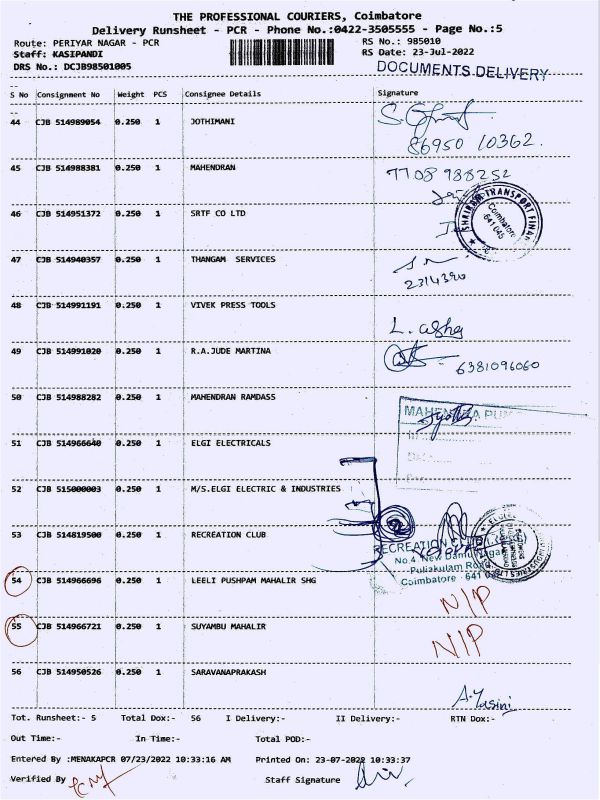 THE PROFESSIONAL COURIERS, Coimbatore
Delivery Runsheet - PCR - Phone No.:0422-3505555 - Page No.:5
Route: PERIYAR NAGAR - PCR RS No.: 985010
Staff: KASIPANDI RS Date: 23-Jul-2022
DRS No.: DCJB98501005 DOCUMENTS DELIVERY
S No Consignment No Weight PCS Consignee Details Signature
44 CJB 514989054 0.250 1 JOTHIMANI
86950 10362.
45 CJB 514988381 0.250 1 MAHENDRAN 7708 988252
46 CJB 514951372 0.250 1 SRTF CO LTD
SHAIRAM TRANSPORT FINAN
Coimbatore
641 045
47 CJB 514940357 0.250 1 THANGAM SERVICES
2314390
48 CJB 514991191 0.250 1 VIVEK PRESS TOOLS
L. asha
49 CJB 514991020 0.250 1 R.A.JUDE MARTINA
6381096060
50 CJB 514988282 0.250 1 MAHENDRAN RAMDASS
51 CJB 514966640 0.250 1 ELGI ELECTRICALS
52 CJB 515000003 0.250 1 M/S.ELGI ELECTRIC & INDUSTRIES
53 CJB 514819500 0.250 1 RECREATION CLUB
RECREATION
No 4, New Damu Nagar
Puliakulam Road
Coimbatore - 641 045
54 CJB 514966696 0.250 1 LEELI PUSHPAM MAHALIR SHG N/P
55 CJB 514966721 0.250 1 SUYAMBU MAHALIR N/P
56 CJB 514950526 0.250 1 SARAVANAPRAKASH
A. Yasini
Tot. Runsheet:- 5 Total Dox:- 56 I Delivery:- II Delivery:- RTN Dox:-
Out Time:- In Time:- Total POD:-
Entered By :MENAKAPCR 07/23/2022 10:33:16 AM Printed On: 23-07-2022 10:33:37
Verified By Staff Signature